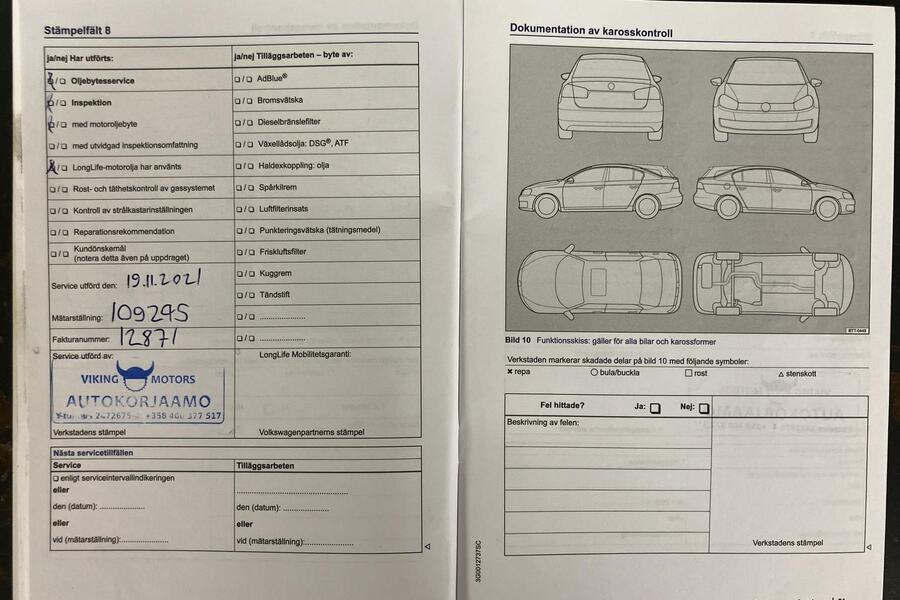 Stämpelfält 8
ja/nej Har utförts:
Oljebytesservice
Inspektion
med motoroljebyte
med utvidgad inspektionsomfattning
LongLife-motorolja har använts
Rost- och täthetskontroll av gassystemet
Kontroll av strålkastarinställningen
Reparationsrekommendation
Kundönskemål
(notera detta även på uppdraget)
Service utförd den: 19.11.2021
Mätarställning: 109295
Fakturanummer: 12871
Service utförd av:
VIKING MOTORS
AUTOKORJAAMO
+358 400 377 517
Verkstadens stämpel
ja/nej Tilläggsarbeten – byte av:
AdBlue®
Bromsvätska
Dieselbränslefilter
Växellådsolja: DSG®, ATF
Haldexkoppling: olja
Spårkilrem
Luftfilterinsats
Punkteringsvätska (tätningsmedel)
Friskluftsfilter
Kuggrem
Tändstift
....................
....................
LongLife Mobilitetsgaranti:
Volkswagenpartnerns stämpel
Nästa servicetillfällen
Service
enligt serviceintervallindikeringen
eller
den (datum): ....................
eller
vid (mätarställning):....................
Tilläggsarbeten
................................................
den (datum): ....................
eller
vid (mätarställning):....................
Dokumentation av karosskontroll
BTT-0449
Bild 10 Funktionsskiss: gäller för alla bilar och karossformer
Verkstaden markerar skadade delar på bild 10 med följande symboler:
repa bula/buckla rost stenskott
Fel hittade? Ja: Nej:
Beskrivning av felen:
Verkstadens stämpel
3G0012737SC